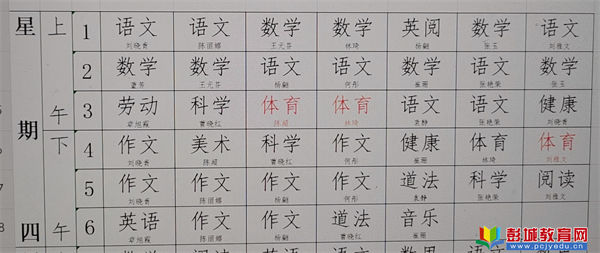 星期四
上午
下午
1 语文 语文 数学 数学 英阅 数学 语文
刘晓香 陈丽娜 王元芬 林琦 杨翩 张玉 刘雅文
2 数学 数学 语文 语文 数学 语文 数学
王元芬 杨翩 何彤 崔珊 张艳荣 张玉
3 劳动 科学 体育 体育 语文 语文 健康
卓旭霞 曹晓红 陈超 林琦 袁静 张艳荣 刘晓香
4 作文 美术 科学 作文 健康 体育 体育
刘晓香 陈超 曹晓红 何彤 崔珊 林琦 刘雅文
5 作文 作文 作文 作文 道法 科学 阅读
刘晓香 陈丽娜 杨翩 何彤 袁静 张艳荣 刘雅文
6 英语 作文 作文 道法 音乐
卓旭霞 陈丽娜 杨翩 何彤 崔珊
彭城教育网
www.pcjyedu.cn